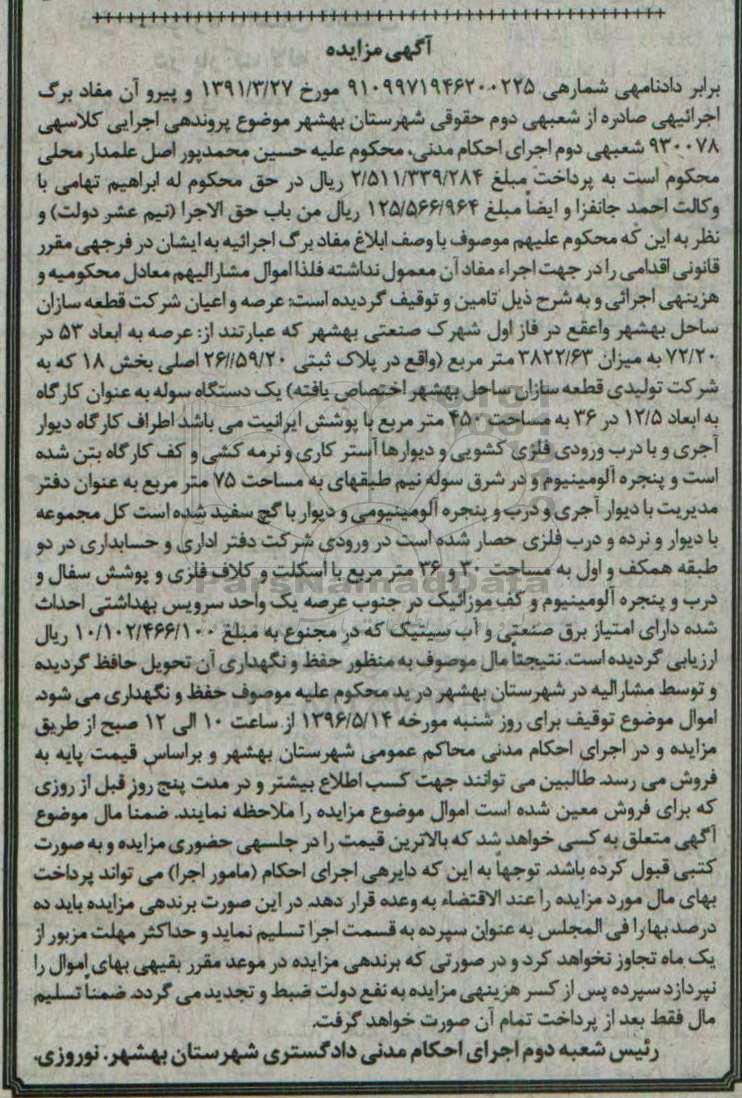 آگهی مزایده
برابر دادنامهی شمارهی ۹۱۰۹۹۷۱۹۴۶۲۰۰۲۲۵ مورخ ۱۳۹۱/۳/۲۷ و پیرو آن مفاد برگ
اجرائیهی صادره از شعبهی دوم حقوقی شهرستان بهشهر موضوع پروندهی اجرایی کلاسهی
۹۳۰۰۷۸ شعبهی دوم اجرای احکام مدنی، محکوم علیه حسین محمدپور اصل علمدار محلی
محکوم است به پرداخت مبلغ ۲/۵۱۱/۳۳۹/۲۸۴ ریال در حق محکوم له ابراهیم تهامی با
وکالت احمد جانفزا و ایضاً مبلغ ۱۲۵/۵۶۶/۹۶۴ ریال من باب حق الاجرا (نیم عشر دولت) و
نظر به این که محکوم علیهم موصوف با وصف ابلاغ مفاد برگ اجرائیه به ایشان در فرجهی مقرر
قانونی اقدامی را در جهت اجراء مفاد آن معمول نداشته فلذا اموال مشارالیهم معادل محکومیه و
هزینهی اجرائی و به شرح ذیل تامین و توقیف گردیده است: عرصه و اعیان شرکت قطعه سازان
ساحل بهشهر واعقع در فاز اول شهرک صنعتی بهشهر که عبارتند از: عرصه به ابعاد ۵۳ در
۷۲/۲۰ به میزان ۳۸۲۲/۶۳ متر مربع (واقع در پلاک ثبتی ۲۶//۵۹/۲۰ اصلی بخش ۱۸ که به
شرکت تولیدی قطعه سازان ساحل بهشهر اختصاص یافته) یک دستگاه سوله به عنوان کارگاه
به ابعاد ۱۲/۵ در ۳۶ به مساحت ۴۵۰ متر مربع با پوشش ایرانیت می باشد اطراف کارگاه دیوار
آجری و با درب ورودی فلزی کشویی و دیوارها آستر کاری و نرمه کشی و کف کارگاه بتن شده
است و پنجره آلومینیوم و در شرق سوله نیم طبقهای به مساحت ۷۵ متر مربع به عنوان دفتر
مدیریت با دیوار آجری و درب و پنجره آلومینیومی و دیوار با گچ سفید شده است کل مجموعه
با دیوار و نرده و درب فلزی حصار شده است در ورودی شرکت دفتر اداری و حسابداری در دو
طبقه همکف و اول به مساحت ۳۰ و ۳۶ متر مربع با اسکلت و کلاف فلزی و پوشش سفال و
درب و پنجره آلومینیوم و کف موزائیک در جنوب عرصه یک واحد سرویس بهداشتی احداث
شده دارای امتیاز برق صنعتی و آب سیتیک که در مجنوع به مبلغ ۱۰/۱۰۲/۴۶۶/۱۰۰ ریال
ارزیابی گردیده است. نتیجتاً مال موصوف به منظور حفظ و نگهداری آن تحویل حافظ گردیده
و توسط مشارالیه در شهرستان بهشهر در ید محکوم علیه موصوف حفظ و نگهداری می شود.
اموال موضوع توقیف برای روز شنبه مورخه ۱۳۹۶/۵/۱۴ از ساعت ۱۰ الی ۱۲ صبح از طریق
مزایده و در اجرای احکام مدنی محاکم عمومی شهرستان بهشهر و براساس قیمت پایه به
فروش می رسد. طالبین می توانند جهت کسب اطلاع بیشتر و در مدت پنج روز قبل از روزی
که برای فروش معین شده است اموال موضوع مزایده را ملاحظه نمایند. ضمناً مال موضوع
آگهی متعلق به کسی خواهد شد که بالاترین قیمت را در جلسهی حضوری مزایده و به صورت
کتبی قبول کرده باشد. توجهاً به این که دایرهی اجرای احکام (مامور اجرا) می تواند پرداخت
بهای مال مورد مزایده را عند الاقتضاء به وعده قرار دهد. در این صورت برندهی مزایده باید ده
درصد بها را فی المجلس به عنوان سپرده به قسمت اجرا تسلیم نماید و حداکثر مهلت مزبور از
یک ماه تجاوز نخواهد کرد و در صورتی که برندهی مزایده در موعد مقرر بقیهی بهای اموال را
نپردازد سپرده پس از کسر هزینهی مزایده به نفع دولت ضبط و تجدید می گردد. ضمناً تسلیم
مال فقط بعد از پرداخت تمام آن صورت خواهد گرفت.
رئیس شعبه دوم اجرای احکام مدنی دادگستری شهرستان بهشهر. نوروزی.
ParsNamadData